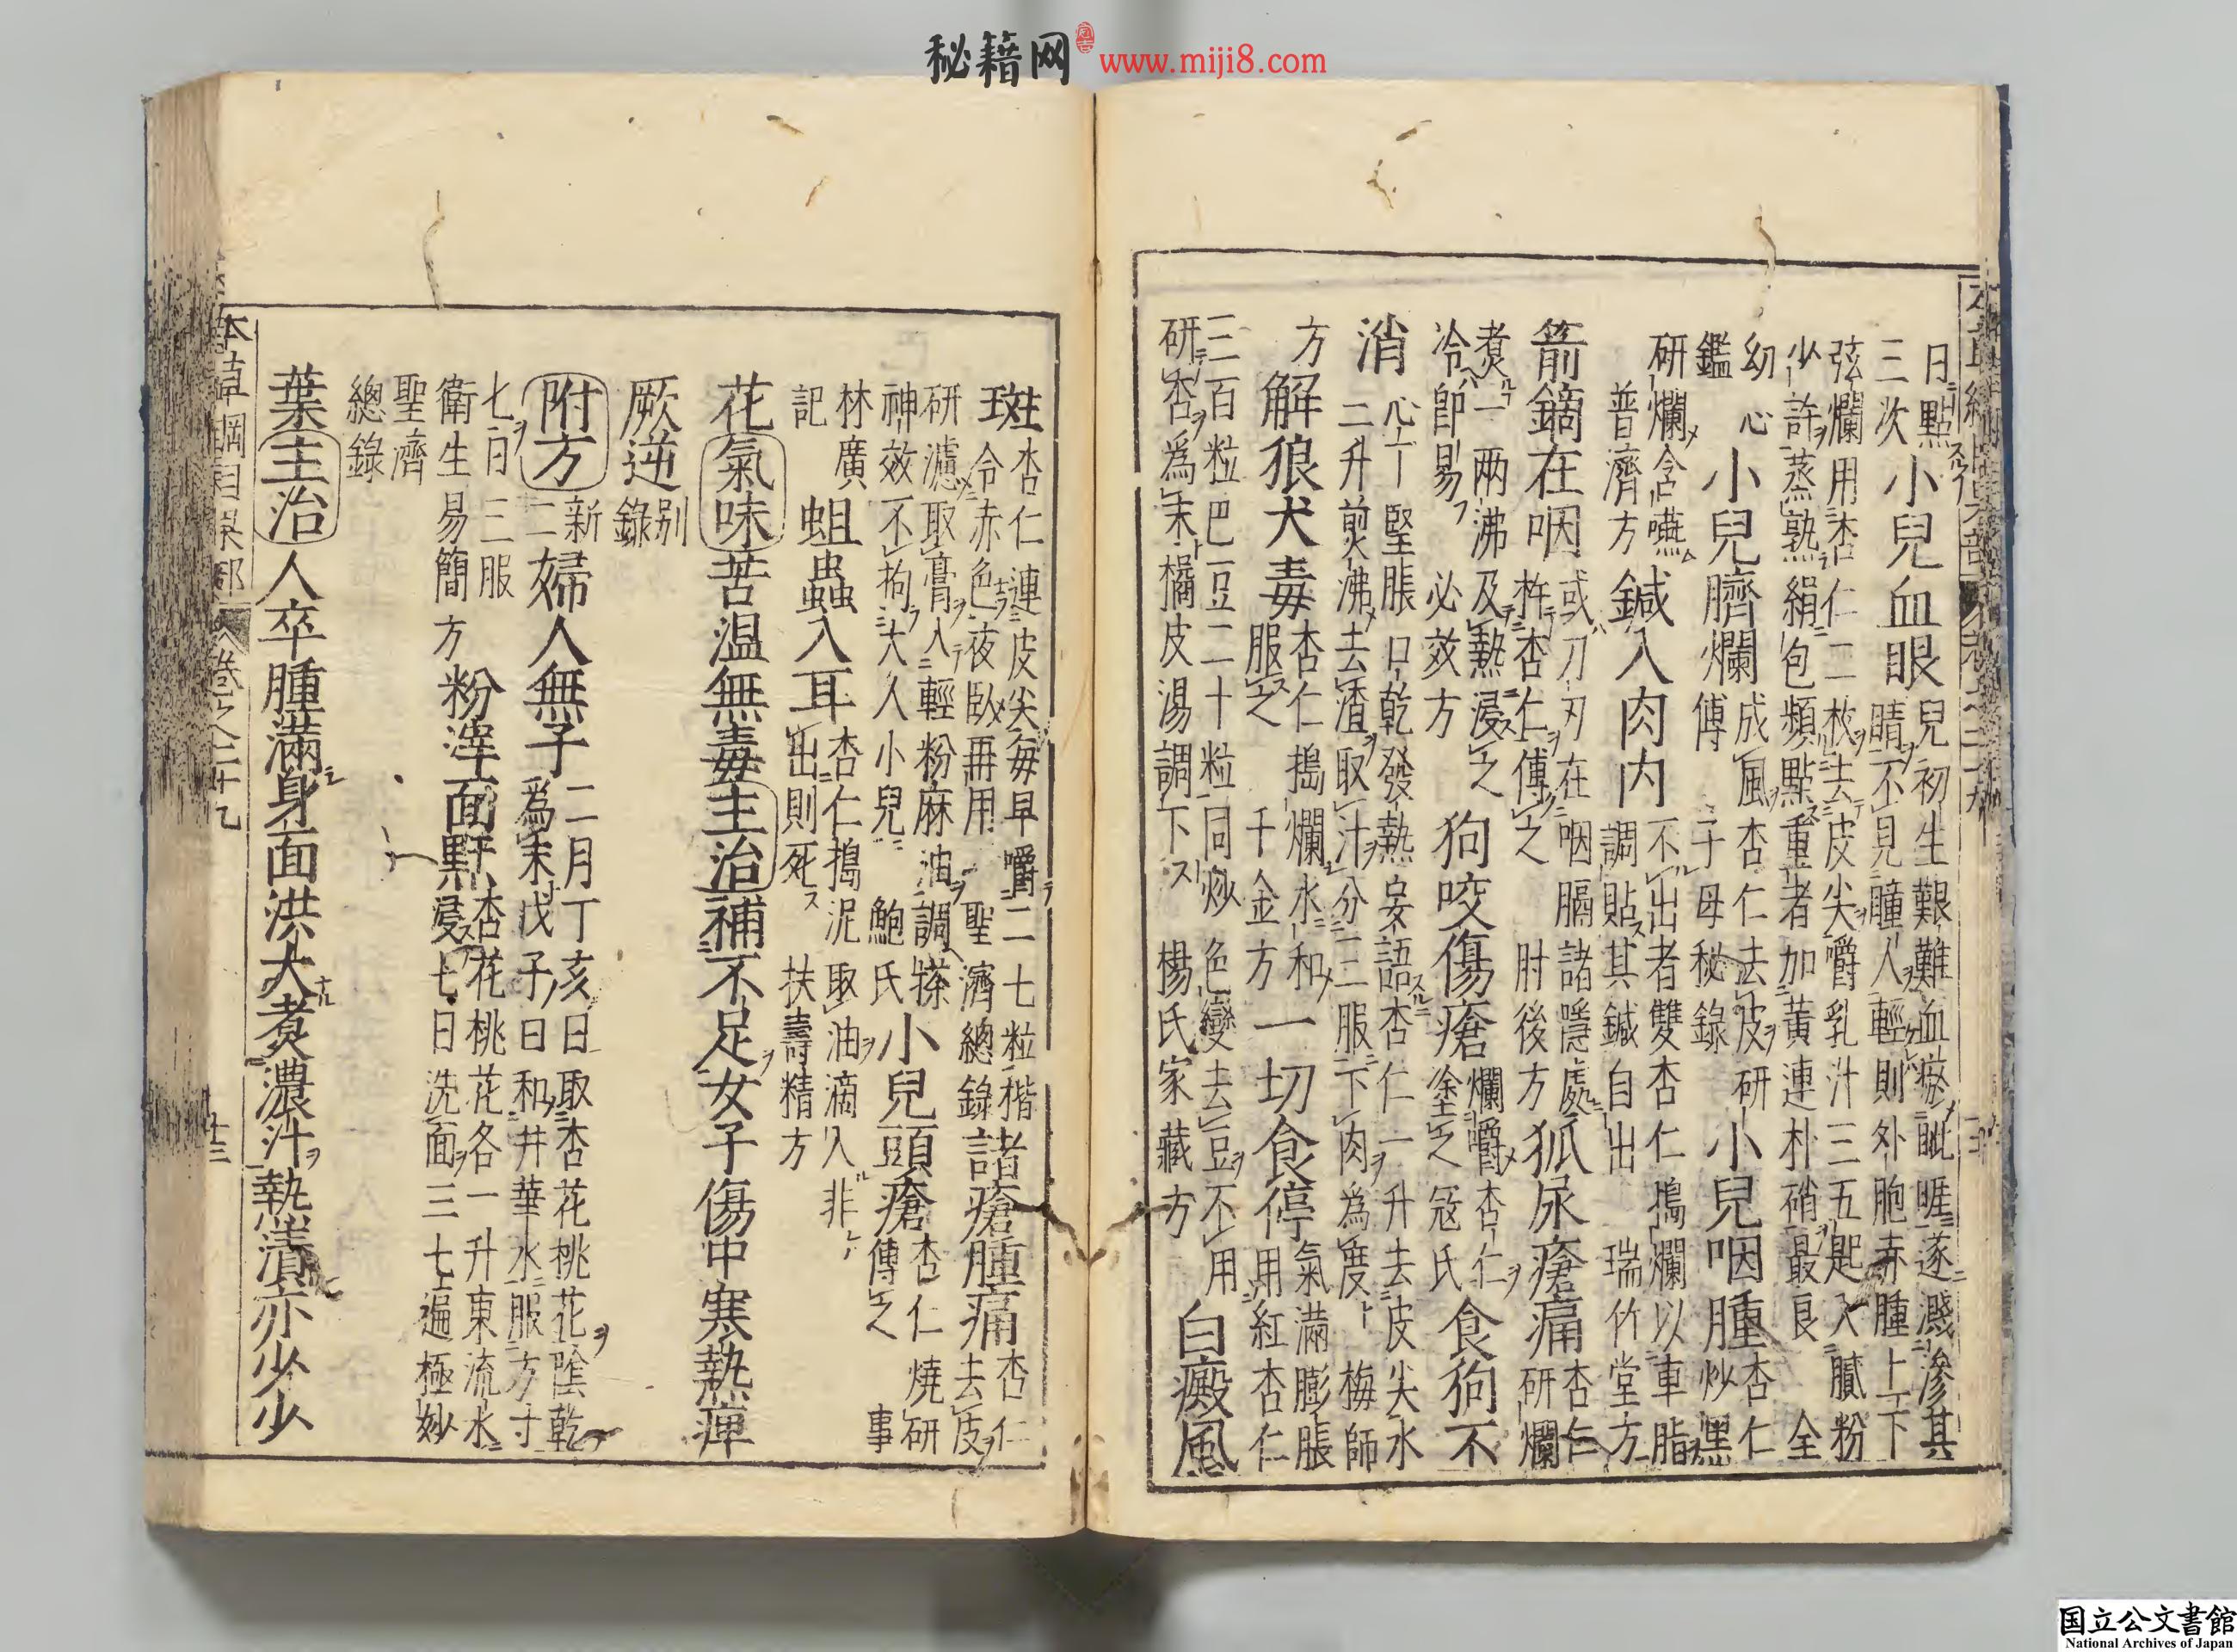 日點
三次
小兒血眼
兒初生艱難血瘀眦睚遂濺滲其
睛不見瞳人輕則外胞赤腫上下
弦爛用杏仁二枚去皮尖嚼乳汁三五匙入膩粉
少許蒸熟絹包頻點重者加黃連朴硝最良 全
幼心
鑑
小兒臍爛
成風杏仁去皮研
傅 千母秘錄
小兒咽腫
杏仁
炒黑
研爛含嚥
普濟方
鍼入肉内
不出者雙杏仁搗爛以車脂
調貼其鍼自出 瑞竹堂方
箭鏑在咽
或刀刃在咽膈諸隱處
杵杏仁傅之 肘後方
狐尿瘡痛
杏仁
研爛
煮一兩沸及熱浸之
冷即易 必效方
狗咬傷瘡
爛嚼杏仁
塗之 冦氏
食狗不
消
心下堅脹口乾發熱妄語杏仁一升去皮尖水
二升煎沸去渣取汁分三服下肉為度 梅師
方
解狼犬毒
杏仁搗爛水和
服之 千金方
一切食停
氣滿膨脹
用紅杏仁
三百粒巴豆二十粒同炒色變去豆不用
研杏為末橘皮湯調下 楊氏家藏方
白癜風
斑
杏仁連皮尖每早嚼二七粒楷
令赤色夜臥再用 聖濟總錄
諸瘡腫痛
杏仁
去皮
研濾取膏入輕粉麻油調搽
神效不拘大人小兒 鮑氏
小兒頭瘡
杏仁燒研
傅之 事
林廣
記
蛆蟲入耳
杏仁搗泥取油滴入非
出則死 扶壽精方
花氣味苦温無毒主治補不足女子傷中寒熱痺
厥逆
别
錄
附方
新
二
婦人無子
二月丁亥日取杏花桃花陰乾
為末戊子日和井華水服方寸
七日三服
衛生易簡方
粉滓面䵟
杏花桃花各一升東流水
浸七日洗面三七遍極妙
聖濟
總錄
葉主治人卒腫滿身面洪大煮濃汁熱漬亦少少
本草綱目果部 卷之二十九 十三
秘籍网 www.miji8.com
国立公文書館
National Archives of Japan